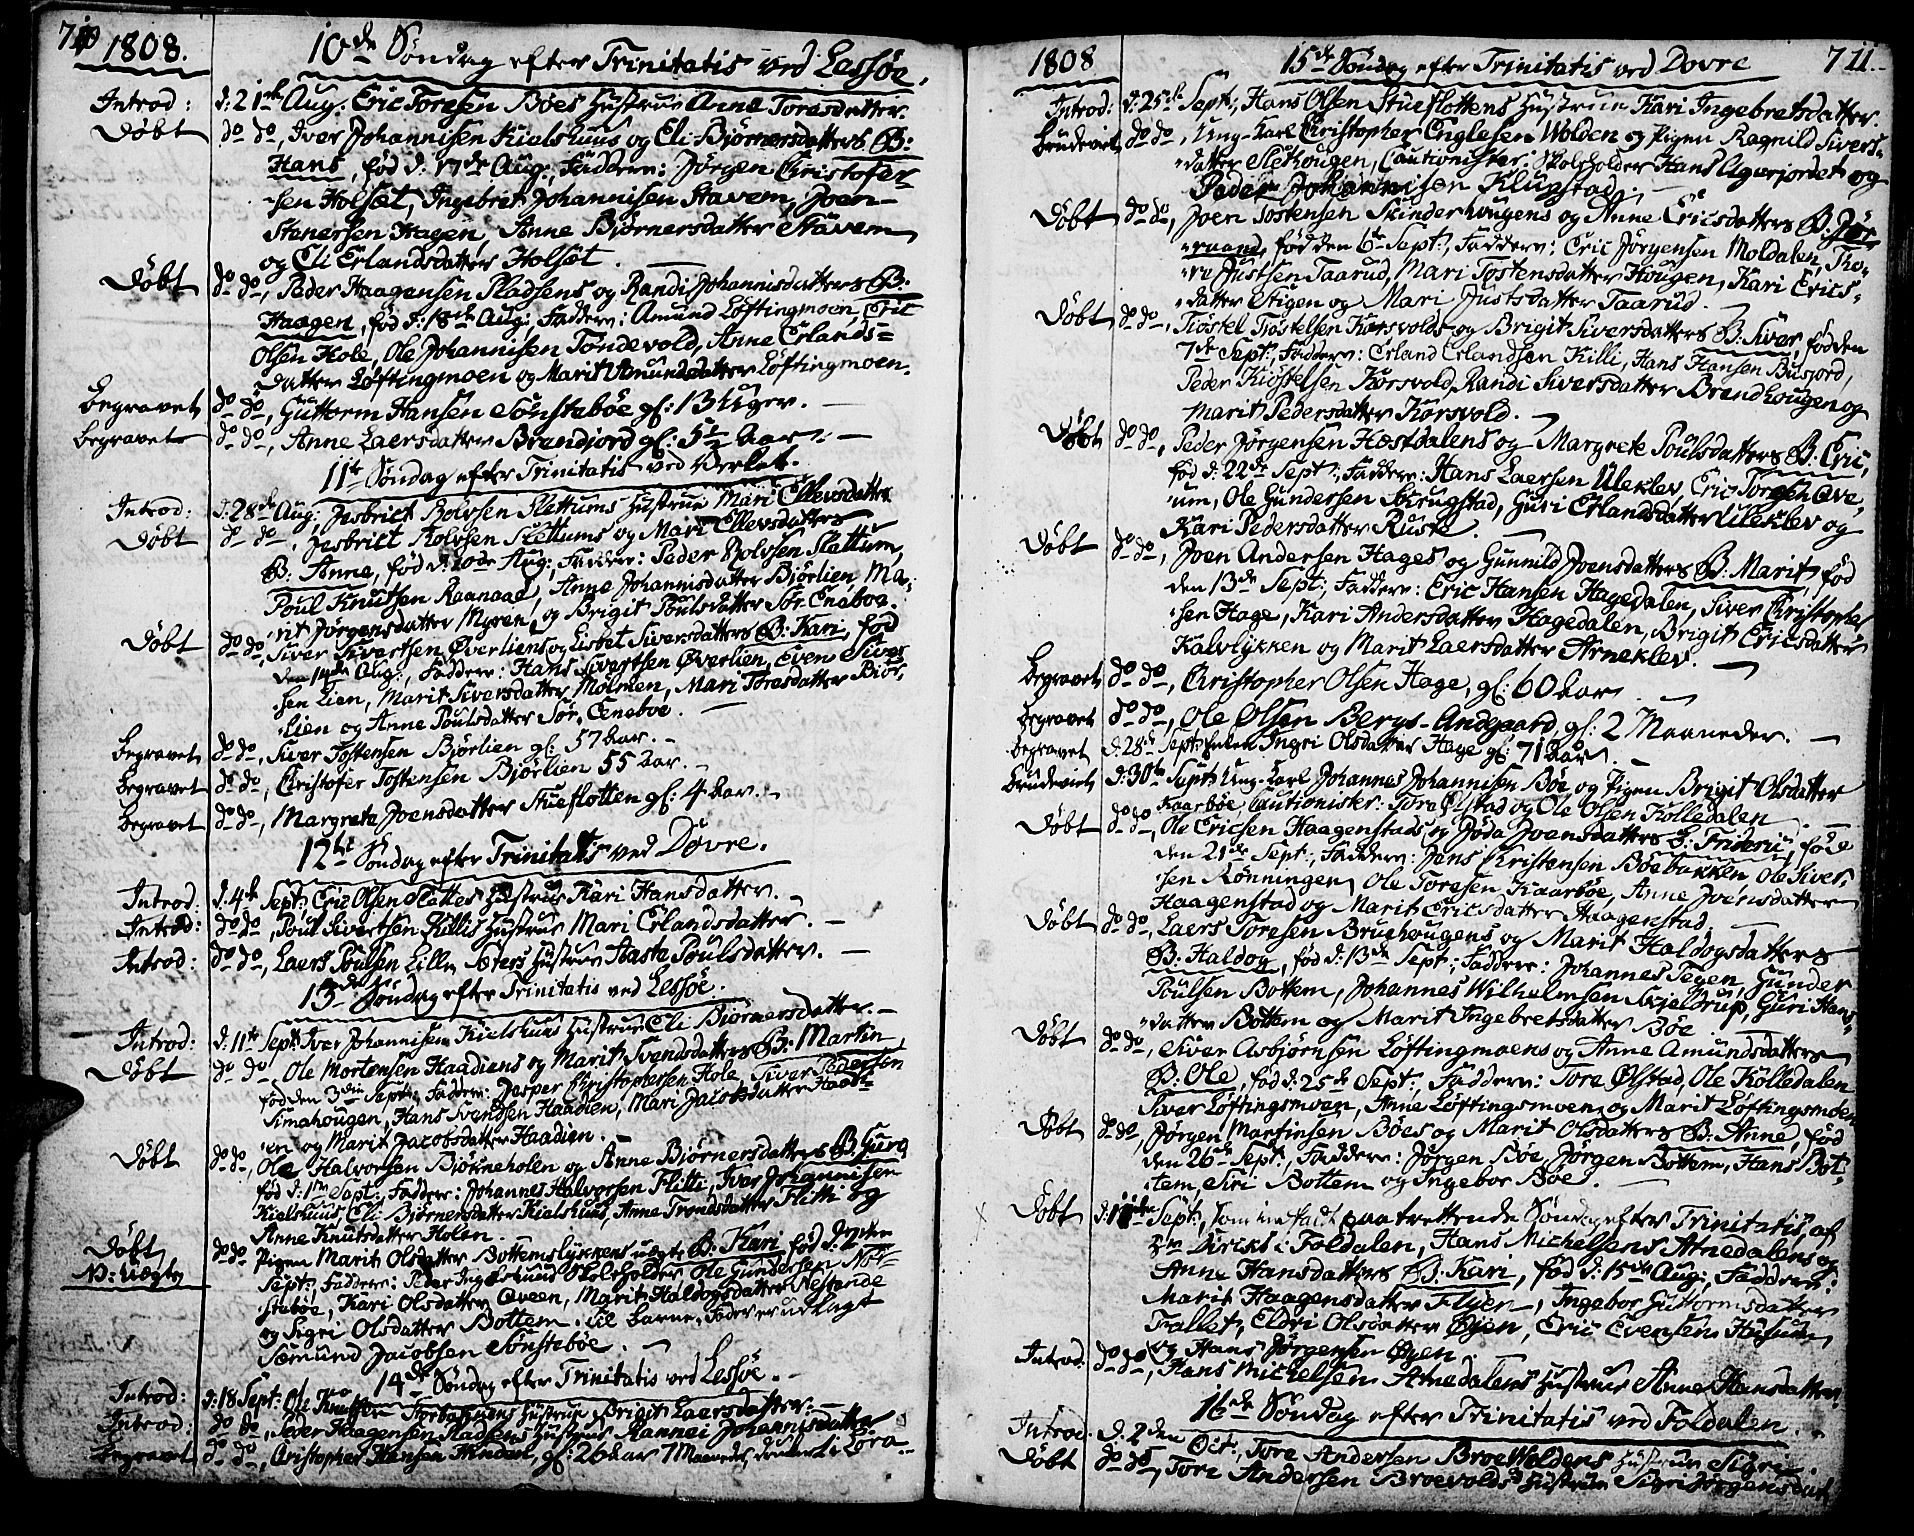 710
1808.
10de Søndag efter Trinitatis ved Lessøe.
Introd: d: 21de Aug: Eric Toresen Böes Hustrue Anne Toresdatter.
Døbt do do, Iver Johannisen Kielshuus og Eli Bjørnersdatters B:
Hans, fød d: 17de Aug:, Faddere: Jørgen Christofer-
sen Holsæt, Ingebrit Johannisen Stavem, Joen
Stenersen Hagen, Anne Bjørnersdatter Stavem
og Eli Erlandsdatter Holsæt.
Døbt do do, Peder Haagensen Pladsens og Randi Johannisdatters B:
Haagen, fød d: 18de Aug: Faddere: Amund Løftingmoen, Eric
Olsen Hole, Ole Johannisen Tondevold, Anne Erlands-
datter Løftingmoen og Marit Amundsdatter Løftingmoen.
Begravet do do, Guttorm Hansen Sönsteböe gl: 13 Uger.
Begravet do do, Anne Laersdatter Brandjord gl: 5 1/2 Aar.
11te Søndag efter Trinitatis ved Verket.
Introd: d: 28de Aug: Jesbrict Rolvsen Slettums Hustrue Mari Ellevsdatter
Døbt do do, Jesbrict Rolvsen Slettums og Mari Ellevsdatters
B: Anne, fød d: 20de Aug:, Faddere: Peder Rolvsen Slettum,
Poul Knutsen Raanaae, Anne Johannisdatter Bjørlien, Ma-
rit Jørgensdatter Myren, og Brigit Poulsdatter Sør. Eneboe.
Døbt do do, Siver Sivertsen Øverliens og Lisbet Siversdatters B: Kari, fød
den 14de Aug:, Faddere: Hans Sivertsen Øverlien, Even Siver
sen Lien, Marit Siversdatter Mølmen, Mari Toresdatter Biør-
lien og Anne Poulsdatter Sør. Eneboe.
Begravet do do, Siver Tostensen Bjørlien gl: 57 Aar.
Begravet do do, Christofer Tostensen Bjørlien 55 Aar.
Begravet do do, Margrete Joensdatter Stueflotten gl: 4 Aar.
12te Søndag efter Trinitatis ved Dovre.
Introd: d: 4de Sept: Eric Olsen Slettes Hustrue Kari Hansdatter.
Introd: do do, Poul Sivertsen Killis Hustrue Mari Erlandsdatter.
Introd: do do, Laers Poulsen Lille Sæters Hustrue Aaste Poulsdatter.
13de Søndag efter Trinitatis ved Lessøe.
Introd: d: 11te Sept: Iver Johannisen Kielshuus Hustrue Eli Bjørnersdatter.
Døbt do do Ole Mortensen Haadiens og Marit Svendsdatters B: Martin
fød den 3die Sept: Faddere: Jesper Christophersen Hole, Siver Pedersen
Simahougen, Hans Svendsen Haadien, Mari Jacobsdatter Haadi-
en og Marit Jacobsdatter Haadien.
Døbt do do, Ole Halvorsen Bjørneholen og Anne Bjørnersdatters B. Guro
fød d: 1ste Sept:, Faddere: Johannes Halvorsen Flitti, Iver Johannisen
Kielshuus, Eli Bjørnersdatter Kielshuus, Anne Trondsdatter Flitti og
Anne Knutsdatter Holen.
Døbt do do Pigen Marit Olsdatter Bottemslykkens uægte B: Kari fød d: 2den
N: Uægte Sept:, Faddere: Peder Ingelsrund Skoleholder, Ole Gundersen Nör-
steböe, Kari Olsdatter Qveen, Marit Haldogsdatter Nestande
og Sigri Olsdatter Bottem. Til Barne-Fader er udlagt
Sæmund Jacobsen Sönsteböe.
14de Søndag efter Trinitatis ved Lessøe.
Introd: d: 18 Sept: Ole Knutsen Hustrue Brigit Laersdatter.
Introd: do do, Peder Haagensen Pladsens Hustrue Johannisdatter
Begravet do do, Christopher Hansen gl: 26 Aar 7 Maaneder, i Lora
1808
15de Søndag efter Trinitatis ved Dovre
711.
Introd: d: 25de Sept:, Hans Olsen Stueflottens Hustrue Kari Ingebretsdatter
Brudeviet do do, Ung-Karl Christopher Englesen Wolden og Pigen Ragnild Sivers-
datter Sletkougen, Cautionister: Skoleholder Hans Agerjordet og
Peder Johannisen Klugstad.
Døbt do do, Joen Tostensen Skinderhougens og Anne Ericsdatters B: Jör-
raand, fød den 6te Sept:, Faddere: Eric Jørgensen Moldalen, Tho-
re Justsen Taarud, Mari Tostensdatter Hougen, Kari Erics-
datter Stigen og Mari Justsdatter Taarud.
Døbt do do, Tiøstel Tjøstelsen Korsvolds og Brigit Siversdatters B: Siver, fød den
7de Sept:, Faddere: Erland Erlandsen Killi, Hans Hansen Busjord,
Peder Kiøstelsen Korsvold, Randi Siversdatter Brandhougen og
Marit Pedersdatter Korsvold.
Døbt do do, Peder Jørgensen Hæstdalens og Margrete Poulsdatters B: Eric,
fød d: 22de Sept:, Faddere: Hans Laersen Uleklev, Eric Toresen Qve-
um, Ole Gundersen Skrugstad, Guri Erlandsdatter Uleklev og
Kari Pedersdatter Ruste.
Døbt do do, Joen Andersen Hages og Gunnild Joensdatters B: Marit, fød
den 13de Sept:, Faddere: Eric Hansen Hagedalen, Siver Christopher
sen Hage, Kari Andersdatter Hagedalen, Brigit Ericsdatter
Kalvlykken og Marit Laersdatter Arneklev.
Begravet do do, Christopher Olsen Hage, gl: 60 Aar.
Begravet do do, Ole Olsen Bergs-Andgaard, gl: 2 Maaneder.
Begravet d: 28de Sept: Enken Ingri Olsdatter Hage gl: 71 Aar.
Brudeviet d: 30te Sept: Ung-Karl Johannes Johannisen Böe og Pigen Brigit Olsdatter
Kaarböe Cautionister: Tore Ølstad og Ole Olsen Kolledalen.
Døbt do do, Ole Ericsen Haagenstads og Jøda Joensdatters B: Frideric, fød
den 21de Sept:, Faddere: Jens Kristensen Böebakken Ole Siver-
sen Rønningen, Ole Toresen Kaarböe, Anne Joensdatter
Haagenstad og Marit Ericsdatter Haagenstad.
Døbt do do, Laers Toresen Bruehougens og Marit Haldogsdatters
B: Haldog, fød d: 13de Sept:, Faddere: Johannes Tegen, Gunder
Poulsen Bottem, Johannes Wilhelmsen Skjeldrup, Guri Hans-
datter Bottem og Marit Ingebretsdatter Böe.
Døbt do do, Siver Asbjørnsen Løftingmoens og Anne Amundsdatters
B: Ole, fød d: 25de Sept:, Faddere: Tore Ølstad, Ole Kolledalen
Siver Løftingsmoen, Anne Løftingsmoen og Marit Løftingsmoen
Døbt do do, Jørgen Martinsen Böes og Marit Olsdatters B: Anne, fød
den 26de Sept:, Faddere: Jørgen Böe, Jørgen Bottem, Hans Bot-
tem, Siri Bottem og Ingebor Böe.
Døbt d: 11te Sept:, som indfaldt paa trettende Søndag efter Trinitatis, af
Hr Diriks i Foldalen, Hans Michelsens Atnedalens og
Anne Hansdatters B: Kari, fød d: 15de Aug:, Faddere:
Marit Haagensdatter Flyen, Ingebor Guttormsdatter
Fallet, Eldri Olsdatter Øyen, Eric Evensen Husum
og Hans Jørgensen Øyen
Introd: do do, Hans Michelsen Atnedalens Hustrue Anne Hansdatter
16de Søndag efter Trinitatis ved Foldalen.
Introd: d: 2den Oct:, Tore Andersen Broevoldens Hustrue Sigri
Døbt do do, Tore Andersen Broevolds Hustrue Sigri Jørgensdat